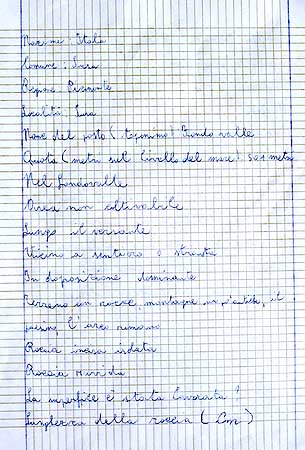 Nazione: Italia
Comune: Susa
Regione: Piemonte
Località: Susa
Nome del posto (toponimo): Fondo valle
Quota (metri sul livello del mare): 501 metri
Nel Fondovalle
Area non coltivabile
Lungo il versante
Vicino a sentiero o strada
In disposizione dominante
Terreno con rocce, montagne, il
L'arco romano
Roccia incisa isolata
Roccia
La superficie è stata lavorata?
Lunghezza della roccia (cm)